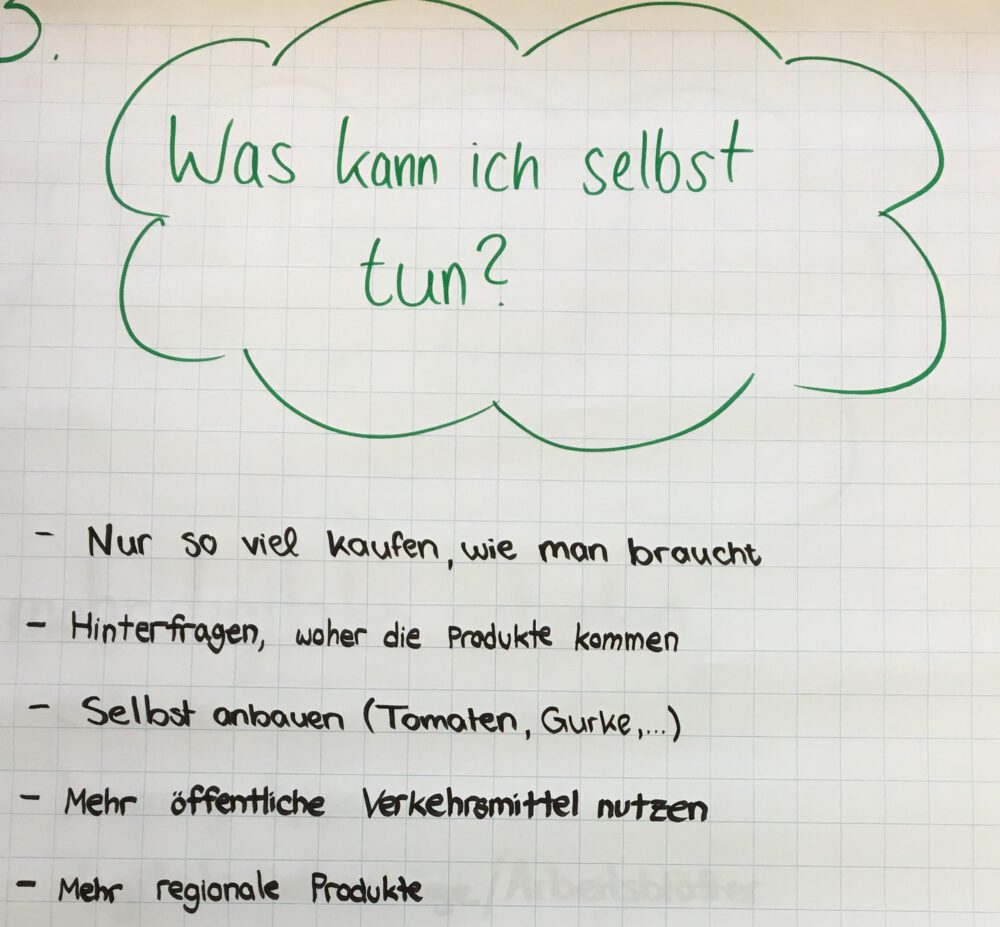 3.
Was kann ich selbst
tun?
- Nur so viel kaufen, wie man braucht
- Hinterfragen, woher die Produkte kommen
- Selbst anbauen (Tomaten, Gurke,...)
- Mehr öffentliche Verkehrsmittel nutzen
- Mehr regionale Produkte